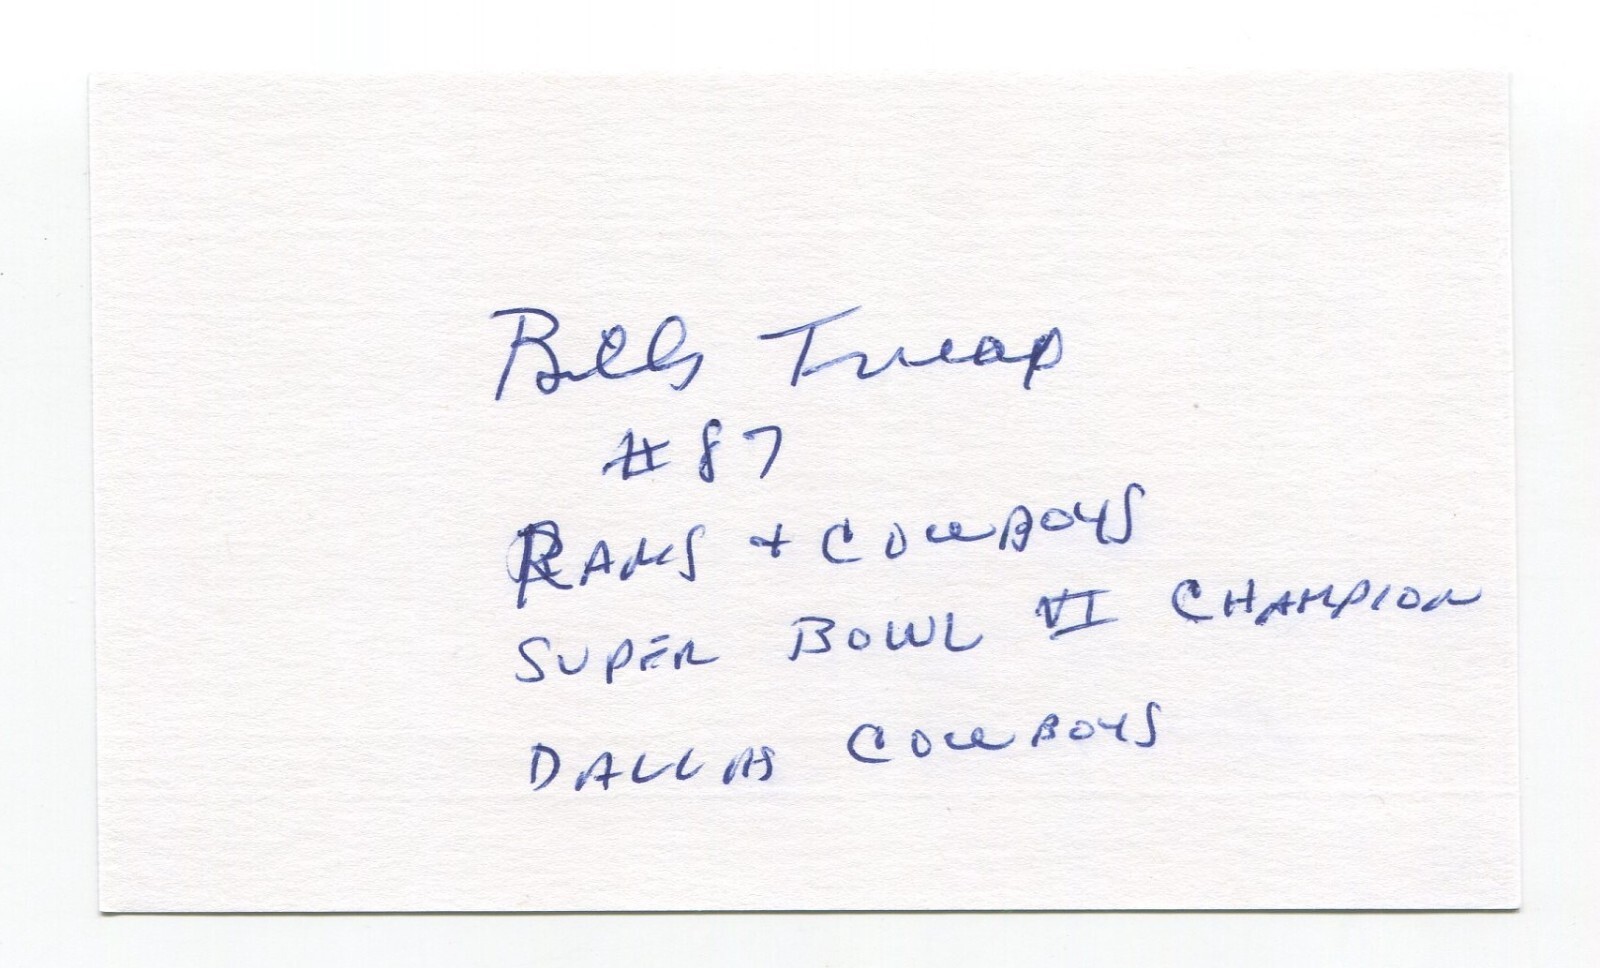 Billy Truax
#87
RAMS + COWBOYS
SUPER BOWL VI CHAMPION
DALLAS COWBOYS